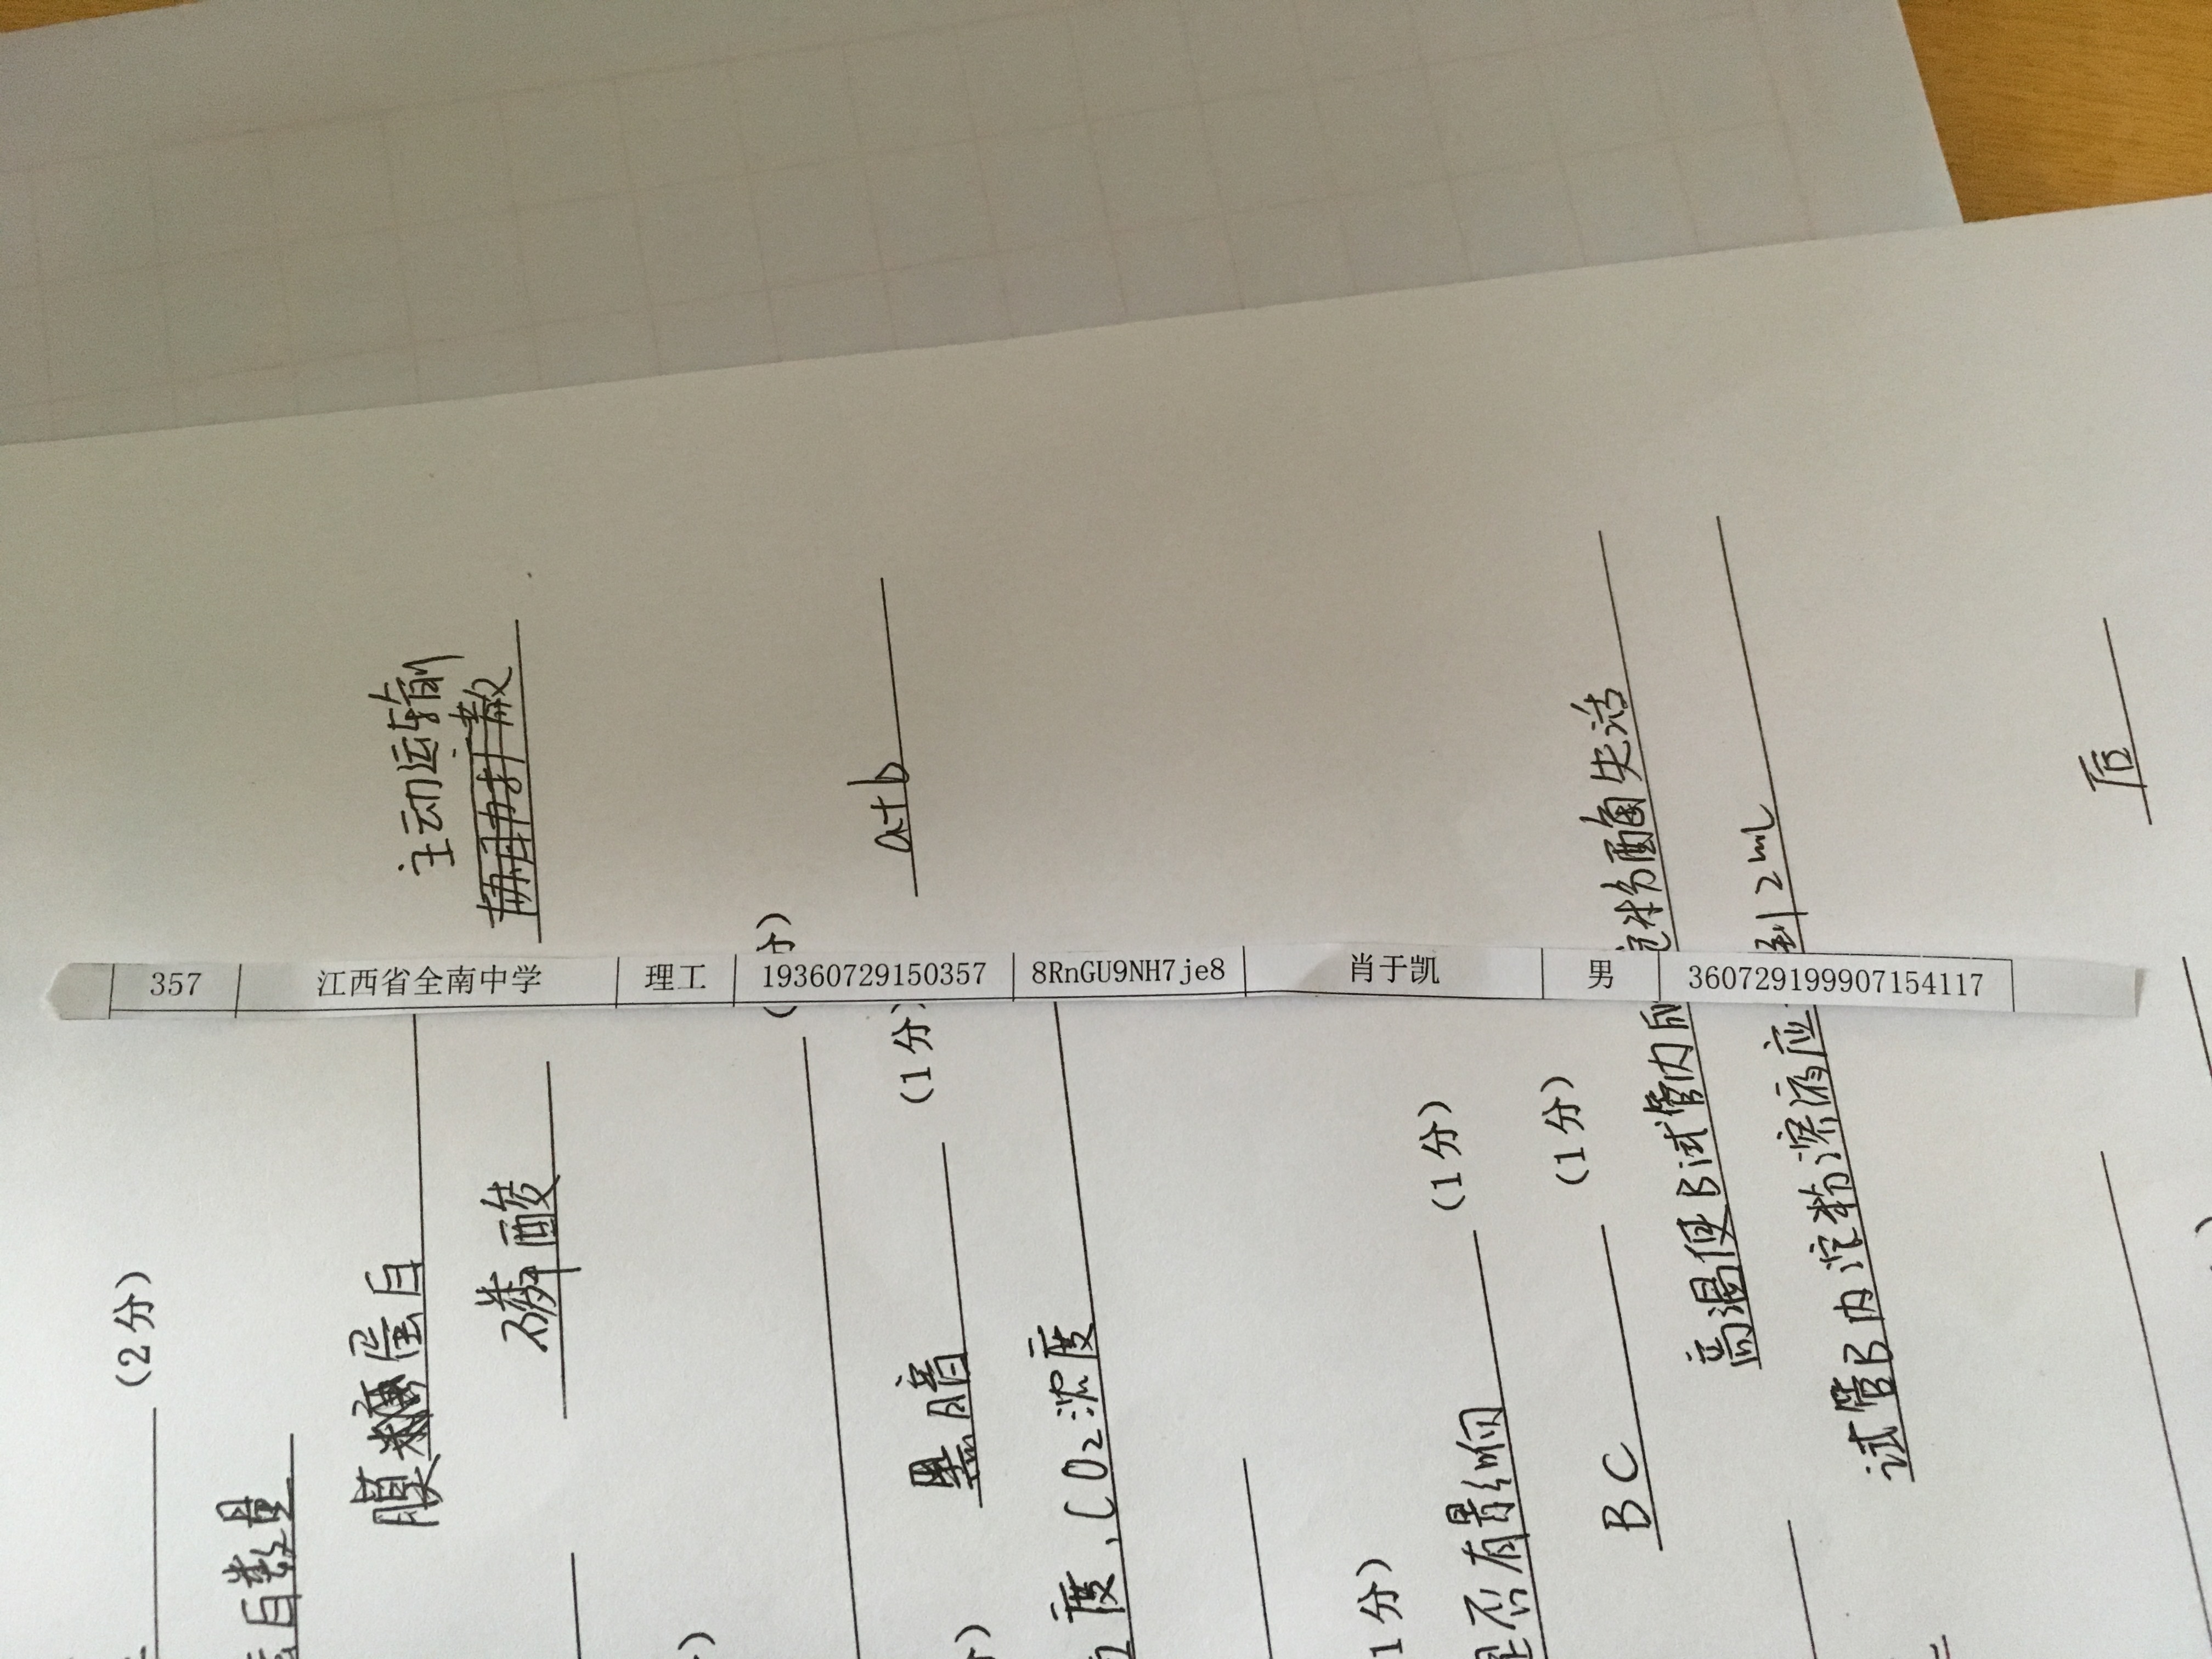 (2分)
白数量
膜糖蛋白
主动运输
磷酸
协助扩散
a+b
黑暗
(1分)
度,CO₂浓度
1分)
是否有影响
(1分)
BC
(1分)
高温使B试管内的淀粉酶失活
试管B内淀粉溶液应 到2mL
后
357
江西省全南中学
理工
19360729150357
8RnGU9NH7je8
肖于凯
男
360729199907154117